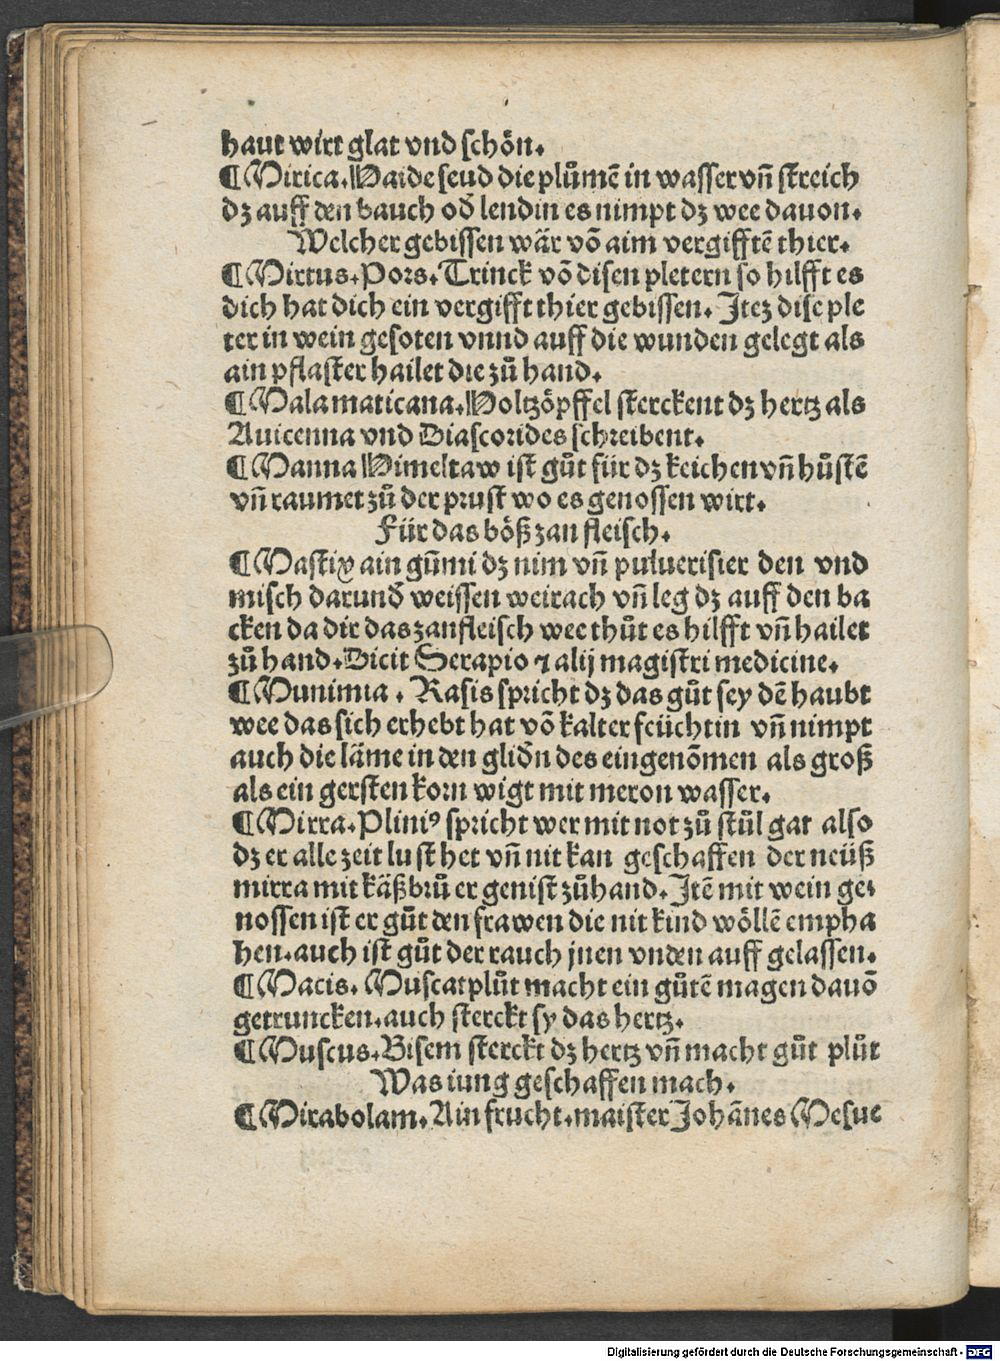 haut wirt glat vnd schön.
¶ Mirica. Haide seud die plůmē in wasser vn̄ streich
dz auff den bauch od̕ lendin es nimpt dz wee dauon.
Welcher gebissen wär vō aim vergifftē thier.
¶ Mirtus. Pors. Trinck vō disen pletern so hilfft es
dich hat dich ein vergifft thier gebissen. Jtez dise ple
ter in wein gesoten vnnd auff die wunden gelegt als
ain pflaster hailet die zů hand.
¶ Mala maticana. Holtzöpffel sterckent dz hertz als
Auicenna vnd Diascorides schreibent.
¶ Manna Himeltaw ist gůt für dz keichen vn̄ hůstē
vn̄ raumet zů der prust wo es genossen wirt.
Für das böß zan fleisch.
¶ Mastix ain gūmi dz nim vn̄ puluerisier den vnd
misch darund̕ weissen weirach vn̄ leg dz auff den ba
cken da dir das zanfleisch wee thůt es hilfft vn̄ hailet
zů hand. Dicit Serapio ⁊ alij magistri medicine.
¶ Munimia. Rasis spricht dz das gůt sey dē haubt
wee das sich erhebt hat vō kalter feüchtin vn̄ nimpt
auch die läme in den glid̕n des eingenōmen als groß
als ein gersten korn wigt mit meron wasser.
¶ Mirra. Pliniꝰ spricht wer mit not zů stůl gat also
dz er alle zeit lust het vn̄ nit kan geschaffen der neüß
mirra mit käßbrů er genist zůhand. Jtē mit wein ge⸗
nossen ist er gůt den frawen die nit kind wöllē empha
hen. auch ist gůt der rauch jnen vnden auff gelassen.
¶ Macis. Muscatplůt macht ein gůtē magen dauō
getruncken. auch sterckt sy das hertz.
¶ Muscus. Bisem sterckt dz hertz vn̄ macht gůt plůt
Was iung geschaffen mach.
¶ Mirabolam. Ain frucht. maister Johānes Mesue
Digitalisierung gefördert durch die Deutsche Forschungsgemeinschaft - DFG